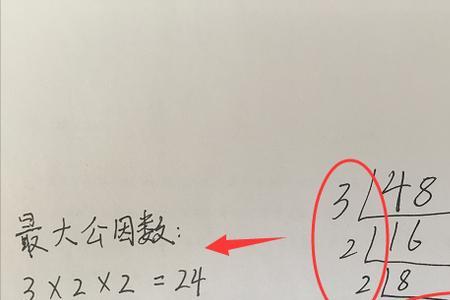 3 48
最大公因数: 2 16
3×2×2=24 2 8